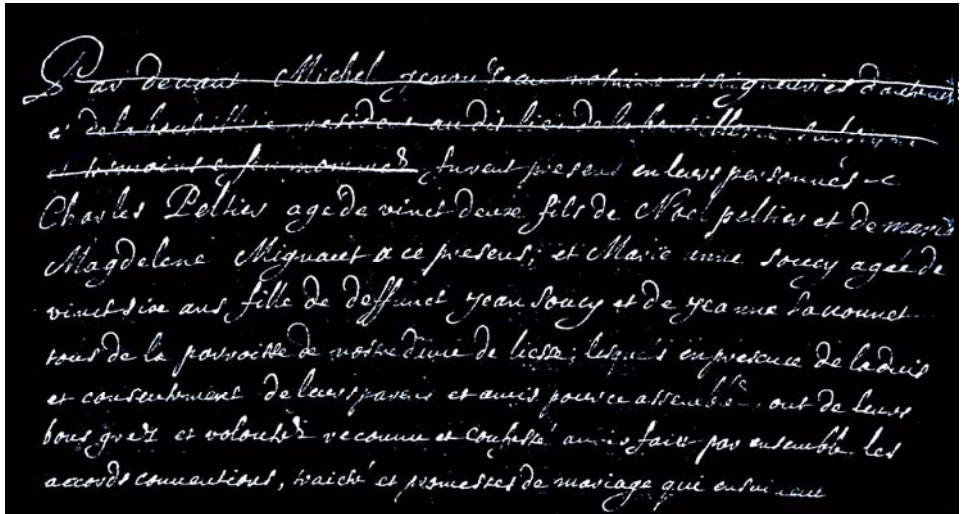 Par devant Michel notaire et seigneuries
et de la bouteillerie resident audit lieu de la bouteillerie soubsigné
et temoins enfin nommez furent presens en leurs personnes
Charles Peltier agé de vinct deux fils de Noel peltier et de marie
Magdelene Mignaut a ce presens; et Marie anne Soucy agée de
vinct six ans fille de deffunct jean Soucy et de jeanne Savonnet
tous de la parroisse de nostre dame de liesse; lesquels en presence de l'advis
et consentement de leurs parens et amis pour ce assemblé, ont de leurs
bons grez et volontéz reconnu et confessé avoir fait par ensemble les
accords conventions, traicté et promesses de mariage qui ensuivent